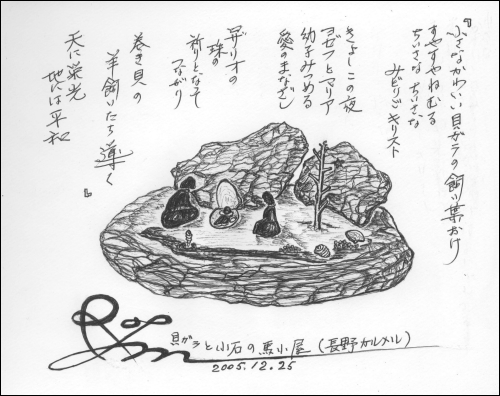 『小さなかわいい貝がラの飼い葉おけ
すやすやねむる
ちいさな ちいさな
みどりごキリスト
きよしこの夜
ヨゼフとマリア
幼子みつめる
愛のまなざし
ロザリオの
珠の
祈りとなって
つながり
巻き貝の
羊飼いたち導く
天に栄光
地には平和
』
貝がラと小石の馬小屋 (長野カルメル)
2005.12.25